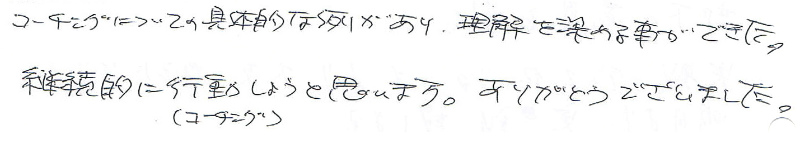 コーチングについての具体的な例があり、理解を深める事ができた。
継続的に行動しようと思います。ありがとうございました。
(コーチング)